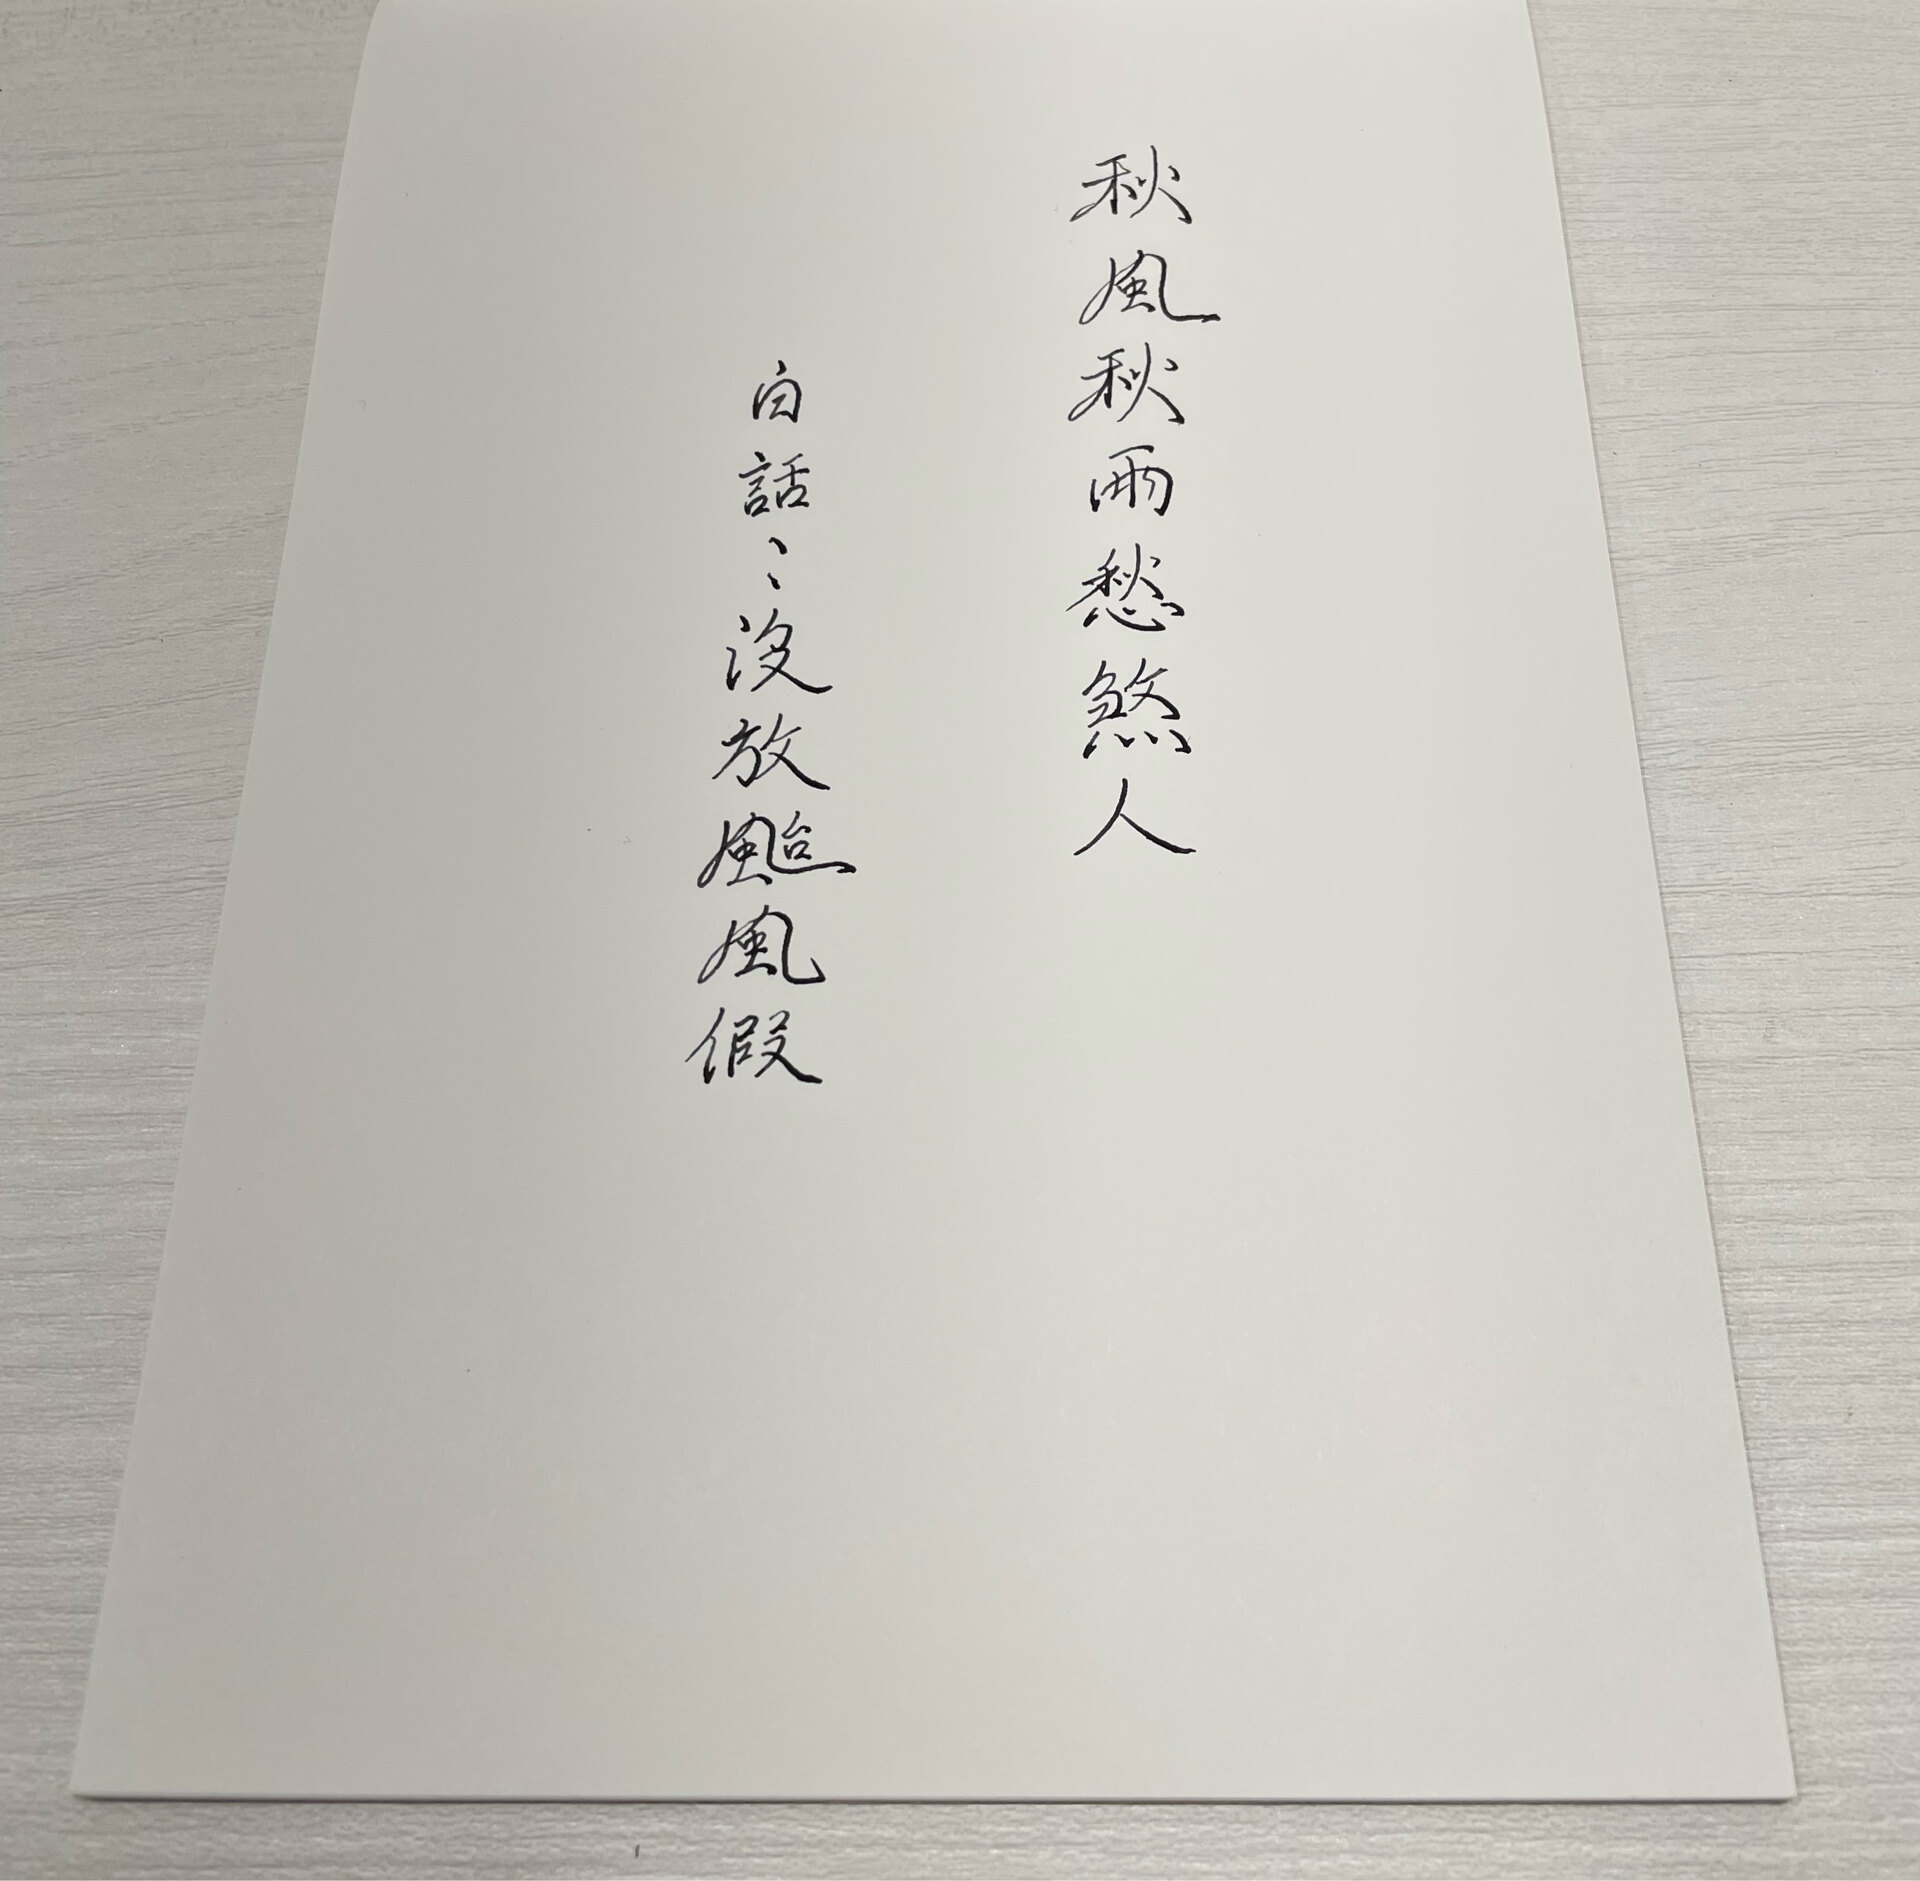 秋風秋雨愁煞人
白話：沒放颱風假